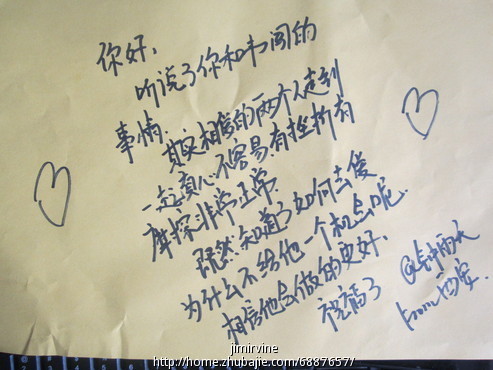 你好,
听说了你和韦闯的
事情.
其实相信的两个人走到
一起真心不容易.有挫折有
摩擦非常正常.
既然知道了如何去爱
为什么不给他一个机会呢.
相信他会做的更好.
祝福了
from 西安.
jimirvine
http://home.zhubajie.com/6887657/